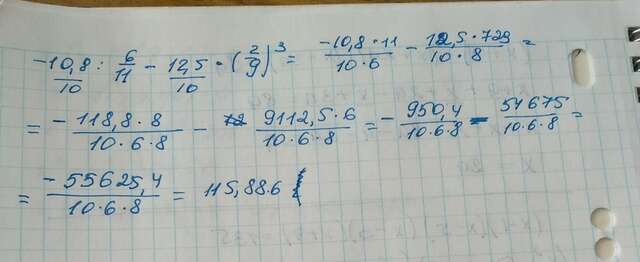 -10,8/10 : 6/11 - 12,5/10 · (2/9)³ = -10,8·11/10·6 - 12,5·729/10·8 =
= -118,8·8/10·6·8 - 9112,5·6/10·6·8 = -950,4/10·6·8 - 54675/10·6·8 =
= -55625,4/10·6·8 = 115,88.6